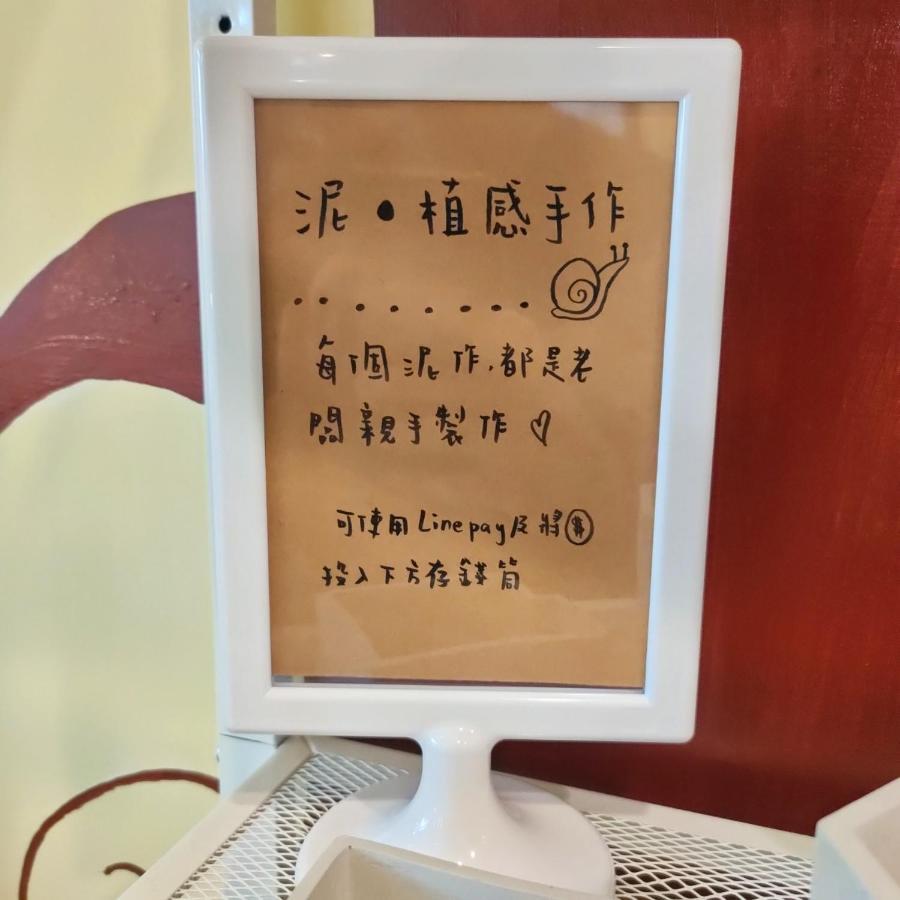 泥•植感手作
每個泥作,都是老
闆親手製作♡
可使用Linepay及將$
投入下方存錢筒